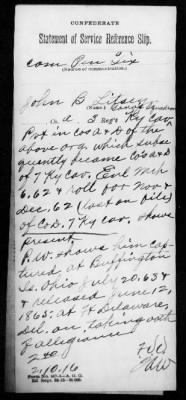 CONFEDERATE
Statement of Service Reference Slip.
Com Pen Six
(Source of communication.)
John B
Co. A 3 Reg't Ky Cav.
Pvt in cos A & D of the
above org. which subse
quently became cos A & D
of 7 Ky Cav. Enl
6.62 & roll for Nov &
Dec. 62 (last on file)
of Co D. 7 Ky cav. shows
present.
P.W. shows him cap-
tured, at Buffington
Is. Ohio July 20.63 &
& released June 12,
1865, at Ft Delaware,
Del. on taking oath
of allegiance
2/10.16